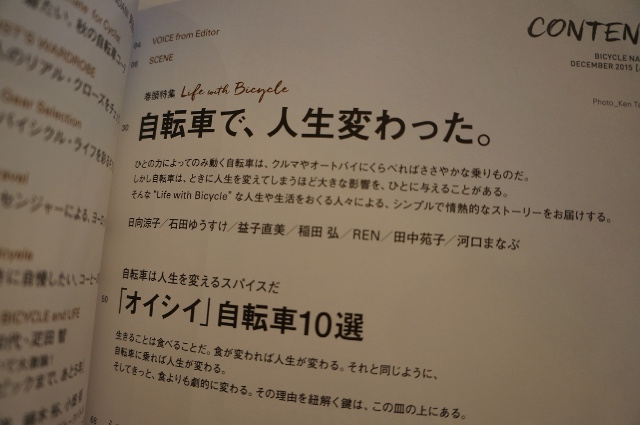 CONTEN
BICYCLE NA
DECEMBER 2015
Photo_Ken Ta
VOICE from Editor
SCENE
巻頭特集 Life with Bicycle
30
自転車で、人生変わった。
ひとの力によってのみ動く自転車は、クルマやオートバイにくらべればささやかな乗りものだ。
しかし自転車は、ときに人生を変えてしまうほど大きな影響を、ひとに与えることがある。
そんな"Life with Bicycle"な人生や生活をおくる人々による、シンプルで情熱的なストーリーをお届けする。
日向涼子／石田ゆうすけ／益子直美／稲田 弘／REN／田中苑子／河口まなぶ
自転車は人生を変えるスパイスだ
50
「オイシイ」自転車10選
生きることは食べることだ。食が変われば人生が変わる。それと同じように、
自転車に乗れば人生が変わる。
そしてきっと、食よりも劇的に変わる。その理由を紐解く鍵は、この皿の上にある。
for Cycle
秋の自転車コー
ST'S WARDROBE
のリアル・クローズをチェ
Gear Selection
バイシクル・ライフを彩る
ravel
センジャーによる、ヨー
cycle
に自慢したい、コーヒー
BICYCLE and LIFE
疋田 智
ピックまで、あと5年